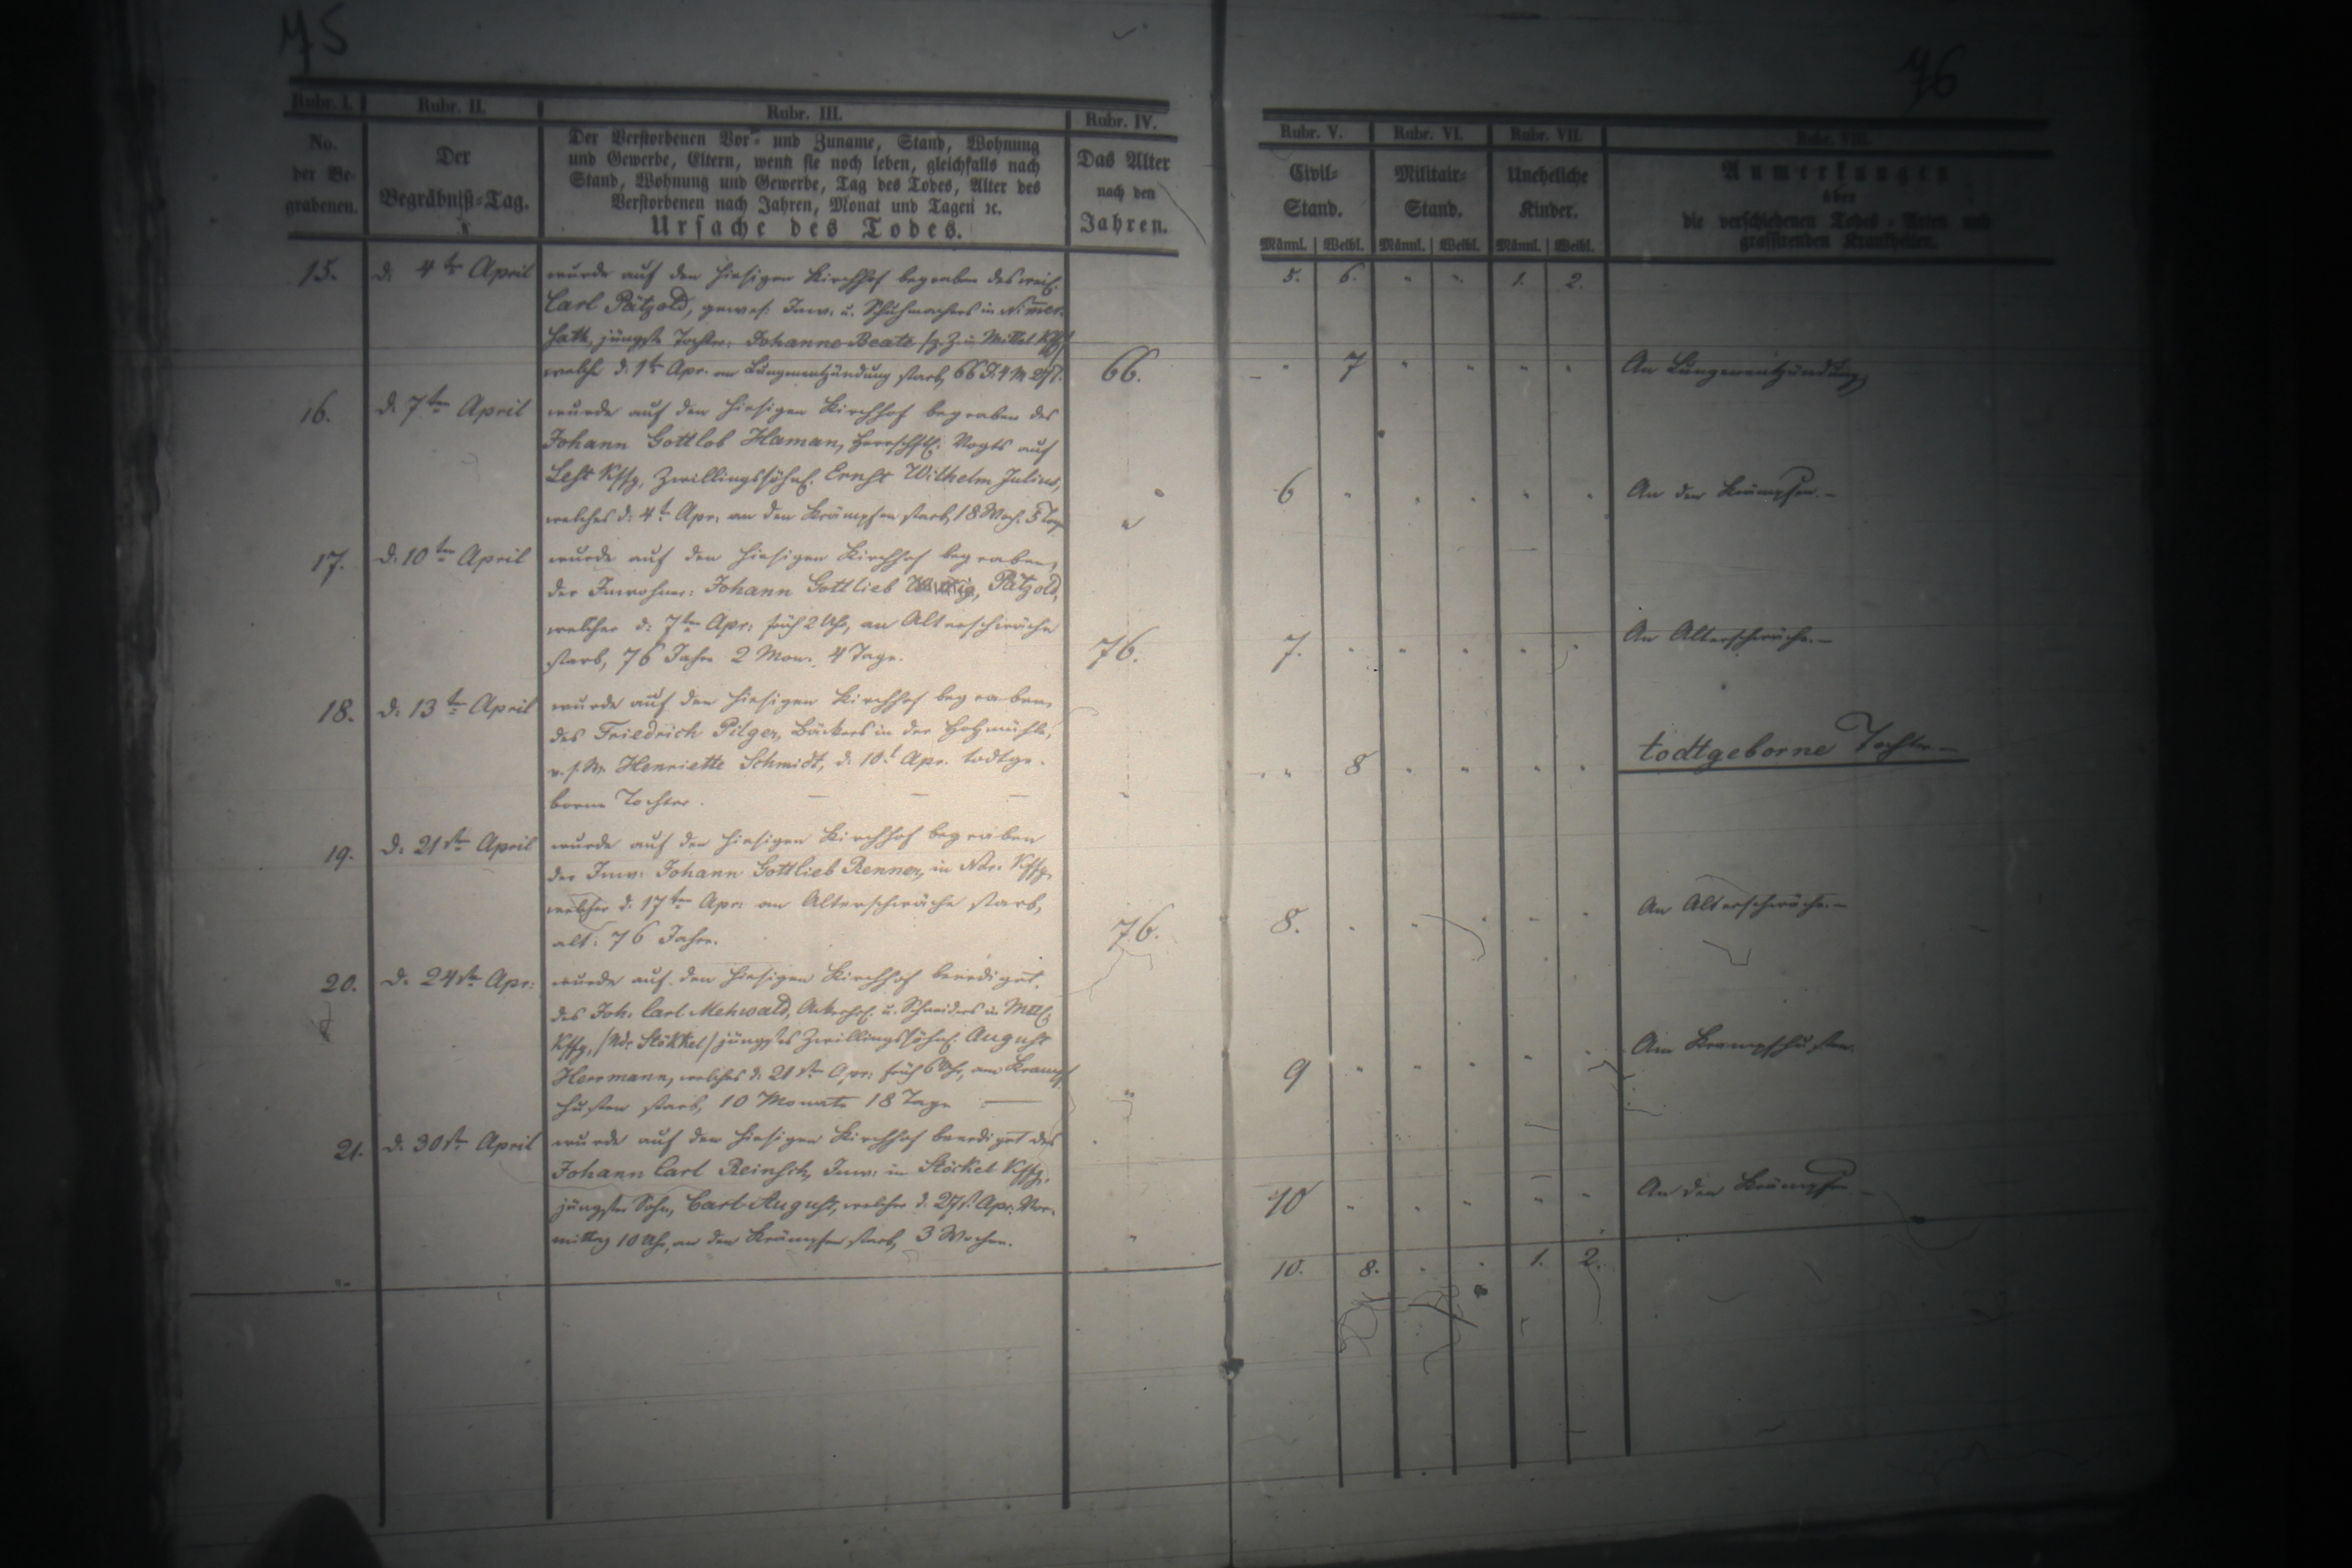 75
76
Rubr. I.
No.
der Be-
grabenen.
Rubr. II.
Der
Begräbniß-Tag.
Rubr. III.
Der Verstorbenen Vor- und Zuname, Stand, Wohnung
und Gewerbe, Eltern, wenn sie noch leben, gleichfalls nach
Stand, Wohnung und Gewerbe, Tag des Todes, Alter des
Verstorbenen nach Jahren, Monat und Tagen ꝛc.
Ursache des Todes.
Rubr. IV.
Das Alter
nach den
Jahren.
Rubr. V.
Civil-
Stand.
Männl. Weibl.
Rubr. VI.
Militair-
Stand.
Männl. Weibl.
Rubr. VII.
Uneheliche
Kinder.
Männl. Weibl.
Rubr. VIII.
Anmerkungen
über
die verschiedenen Todes-Arten und
grassirenden Krankheiten.
15. d. 4te April wurde auf den hiesigen Kirchhof begraben des weil. 5. 6. " " 1. 2.
Carl Pätzold, gewes. Inw. u. Schuhmachers in
jüngste Tochter, Johanne Beate
welche d. 1te Apr. an Lungenentzündung starb, 66 J. 4 M. 66. " 7 " " " " An Lungenentzündung
16. d. 7ten April wurde auf den hiesigen Kirchhof begraben des
Johann Gottlob Haman, herrschftl. Vogts auf
Lest Kffg, Zwillingssöhnl. Ernst Wilhelm Julius, 6 " " " " " An den Krämpfen. -
welches d. 4t. Apr. an den Krämpfen starb, 18 Woch. 5 Tage "
17. d. 10ten April wurde auf den hiesigen Kirchhof begraben,
der Inwohner: Johann Gottlieb Pätzold,
welcher d. 7ten Apr: früh 2 Uhr, an Altersschwäche
starb, 76 Jahre 2 Mon. 4 Tage. 76. 7. " " " " " An Altersschwäche. -
18. d. 13te April wurde auf den hiesigen Kirchhof begraben,
des Friedrich Pilger, Bäckers in der Holzmühle,
v. s. W. Henriette Schmidt, d. 10t Apr. todtge- " 8 " " " " todtgeborne Tochter -
borne Tochter. — — — "
19. d. 21ste April wurde auf den hiesigen Kirchhof begraben
der Inw: Johann Gottlieb Renner, in Ndr. Kffg,
welcher d. 17ten Apr: an Altersschwäche starb,
alt: 76 Jahre. 76. 8. " " " " " An Altersschwäche. -
20. d. 24ste Apr: wurde auf den hiesigen Kirchhof beerdiget,
des Joh. Carl Mehwald, u. Schneiders in Mttl.
Kffg, /Ndr Stökkel/ jüngstes Zwillingssöhnl. August
Herrmann, welches d. 21ste Apr: früh 6 Uhr, am Krampf-
husten starb, 10 Monate 18 Tage — " 9 " " " " " Am Krampfhusten.
21. d. 30ste April wurde auf den hiesigen Kirchhof beerdiget des
Johann Carl Reinsch, Inw: in Stöckel Kffg,
jüngster Sohn, Carl August, welcher d. 27st. Apr: Vor- 10 " " " " " An den Krämpfen -
mittag 10 Uhr, an den Krämpfen starb, 3 Wochen. "
10. 8. " " 1. 2.